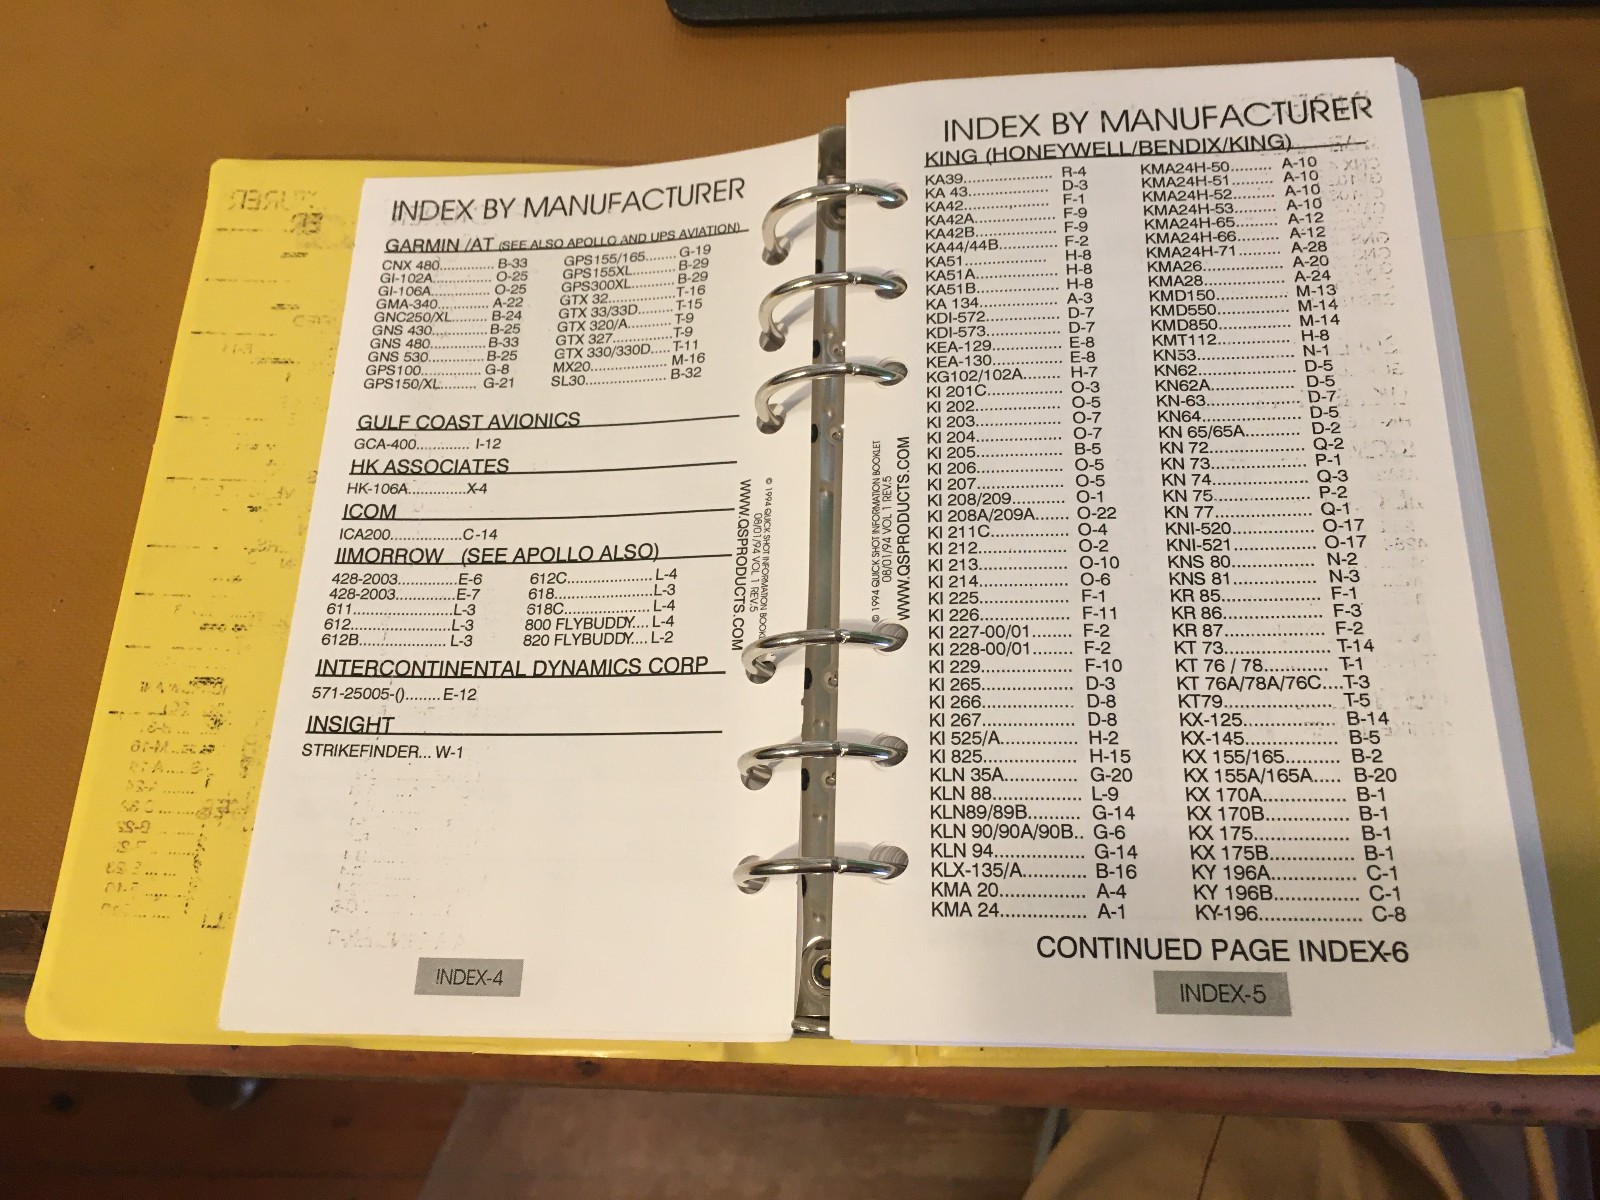 INDEX BY MANUFACTURER
GARMIN /AT (SEE ALSO APOLLO AND UPS AVIATION)
CNX 480............ B-33
GI-102A............ O-25
GI-106A............ O-25
GMA-340............ A-22
GNC250/XL......... B-24
GNS 430............ B-25
GNS 480............ B-33
GNS 530............ B-25
GPS100............. G-8
GPS150/XL........ G-21
GPS155/165....... G-19
GPS155XL.......... B-29
GPS300XL.......... B-29
GTX 32............... T-16
GTX 33/33D........ T-15
GTX 320/A........... T-9
GTX 327.............. T-9
GTX 330/330D..... T-11
MX20.................. M-16
SL30................... B-32
GULF COAST AVIONICS
GCA-400............ I-12
HK ASSOCIATES
HK-106A.............X-4
ICOM
ICA200................C-14
IIMORROW (SEE APOLLO ALSO)
428-2003.............E-6
428-2003.............E-7
611.......................L-3
612.......................L-3
612B.....................L-3
612C..................... L-4
618........................L-3
618C..................... L-4
800 FLYBUDDY.... L-4
820 FLYBUDDY.... L-2
INTERCONTINENTAL DYNAMICS CORP
571-25005-()........ E-12
INSIGHT
STRIKEFINDER... W-1
INDEX-4
© 1994 QUICK SHOT INFORMATION
08/01/94 VOL 1 REV.5
WWW.QSPRODUCTS.COM
© 1994 QUICK SHOT INFORMATION BOOKLET
08/01/94 VOL 1 REV.5
WWW.QSPRODUCTS.COM
INDEX BY MANUFACTURER
KING (HONEYWELL/BENDIX/KING)
KA39..................... R-4
KA 43.................... D-3
KA42..................... F-1
KA42A................... F-9
KA42B................... F-9
KA44/44B.............. F-2
KA51..................... H-8
KA51A................... H-8
KA51B................... H-8
KA 134.................. A-3
KDI-572................. D-7
KDI-573................. D-7
KEA-129................ E-8
KEA-130................ E-8
KG102/102A.......... H-7
KI 201C................. O-3
KI 202................... O-5
KI 203................... O-7
KI 204................... O-7
KI 205................... B-5
KI 206................... O-5
KI 207................... O-5
KI 208/209............ O-1
KI 208A/209A....... O-22
KI 211C................. O-4
KI 212................... O-2
KI 213................... O-10
KI 214................... O-6
KI 225................... F-1
KI 226................... F-11
KI 227-00/01........ F-2
KI 228-00/01........ F-2
KI 229................... F-10
KI 265................... D-3
KI 266................... D-8
KI 267................... D-8
KI 525/A................ H-2
KI 825................... H-15
KLN 35A................ G-20
KLN 88.................. L-9
KLN89/89B........... G-14
KLN 90/90A/90B.. G-6
KLN 94.................. G-14
KLX-135/A............ B-16
KMA 20................. A-4
KMA 24................. A-1
KMA24H-50......... A-10
KMA24H-51......... A-10
KMA24H-52......... A-10
KMA24H-53......... A-10
KMA24H-65......... A-12
KMA24H-66......... A-12
KMA24H-71......... A-28
KMA26.................. A-20
KMA28.................. A-24
KMD150................ M-13
KMD550................ M-14
KMD850................ M-14
KMT112................. H-8
KN53..................... N-1
KN62..................... D-5
KN62A................... D-5
KN-63.................... D-7
KN64..................... D-5
KN 65/65A............ D-2
KN 72................... Q-2
KN 73................... P-1
KN 74................... Q-3
KN 75................... P-2
KN 77................... Q-1
KNI-520................ O-17
KNI-521................ O-17
KNS 80................. N-2
KNS 81................. N-3
KR 85................... F-1
KR 86................... F-3
KR 87................... F-2
KT 73................... T-14
KT 76 / 78............ T-1
KT 76A/78A/76C....T-3
KT79..................... T-5
KX-125.................. B-14
KX-145.................. B-5
KX 155/165........... B-2
KX 155A/165A..... B-20
KX 170A............... B-1
KX 170B............... B-1
KX 175................. B-1
KX 175B............... B-1
KY 196A............... C-1
KY 196B............... C-1
KY-196.................. C-8
CONTINUED PAGE INDEX-6
INDEX-5